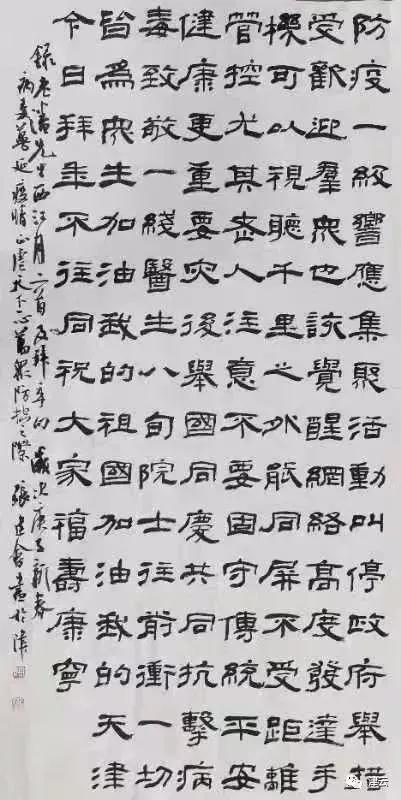 防疫一級響應集聚活動叫停政府舉措
受歡迎羣眾也該覺醒網絡高度發達手
機可以視聽千里之外能同屏不受距離
管控尤其老人注意不要固守傳統平安
健康更重要灾後舉國同慶共同抗擊病
毒致敬一綫醫生八旬院士往前衝一切
皆爲眾生加油我的祖國加油我的天津
今日拜年不往同祝大家福壽康寧
錄老先生西江月二首及拜年句歲次庚子新春
病毒蔓延疫情正虐天下一心萬眾防控之際張建會書於津
津云